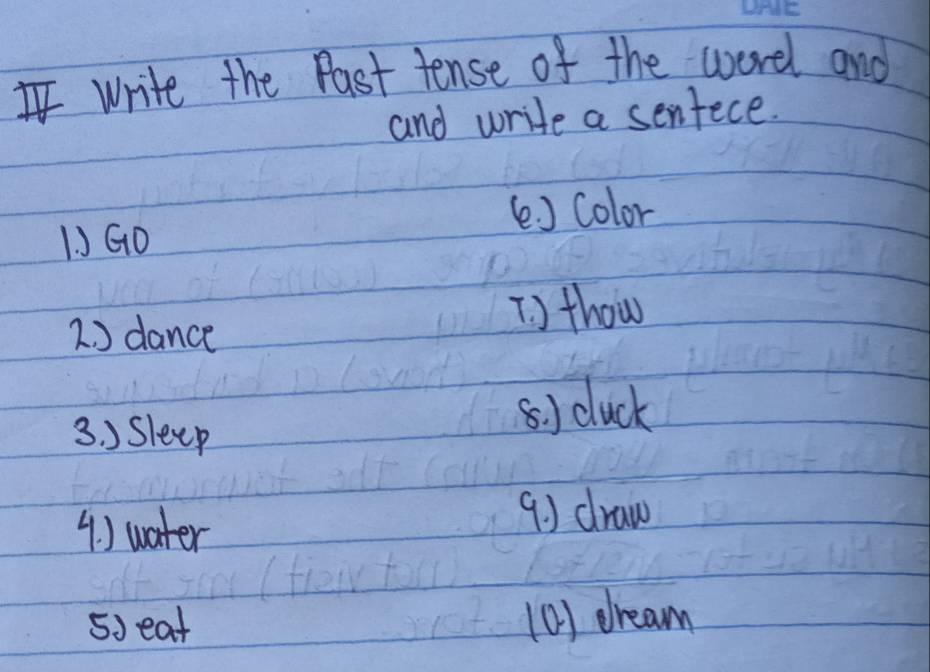 DATE
IV Write the Past tense of the word and
and write a sentece.
1.) GO
2.) dance
3.) Sleep
4.) water
5.) eat
6.) Color
7.) thow
8.) duck
9.) draw
10.) dream